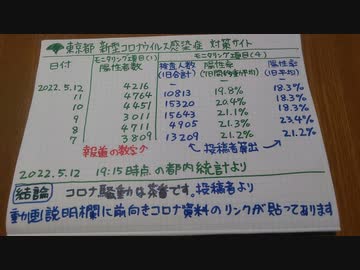 東京都 新型コロナウイルス感染症 対策サイト
モニタリング項目(1) モニタリング項目(4)
日付 陽性者数 検査人数 陽性率 陽性率
(1日合計) (7日間移動平均) (1日平均)
2022.5.12 4216
11 4764 10813 19.8% 18.3%
10 4451 15320 20.4% 18.3%
9 3011 15643 21.3% 18.3%
8 4711 4905 21.3% 23.4%
7 3809 13209 21.1% 21.2%
報道の数字↑ ↑投稿者算出↑
2022.5.12 19:15時点の都内統計より
結論 コロナ騒動な茶番です。投稿者より
動画説明欄に前向きコロナ資料のリンクが貼ってあります